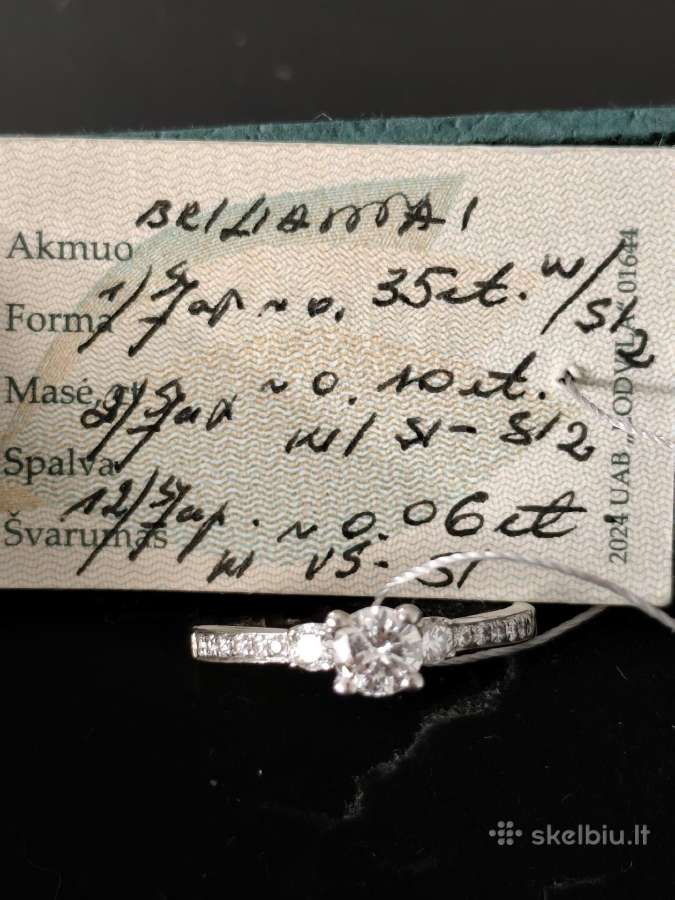 BRILIANTAI
Akmuo
1/57 ap ~ 0. 35ct. W/SI2
Forma
Masė
2/57 ap ~ 0. 10ct.
W/ SI - SI2
Spalva
12/57 ap. ~ 0.06ct
Švarumas
W VS - SI
2024 UAB „LODVILA“ 01644
skelbiu.lt